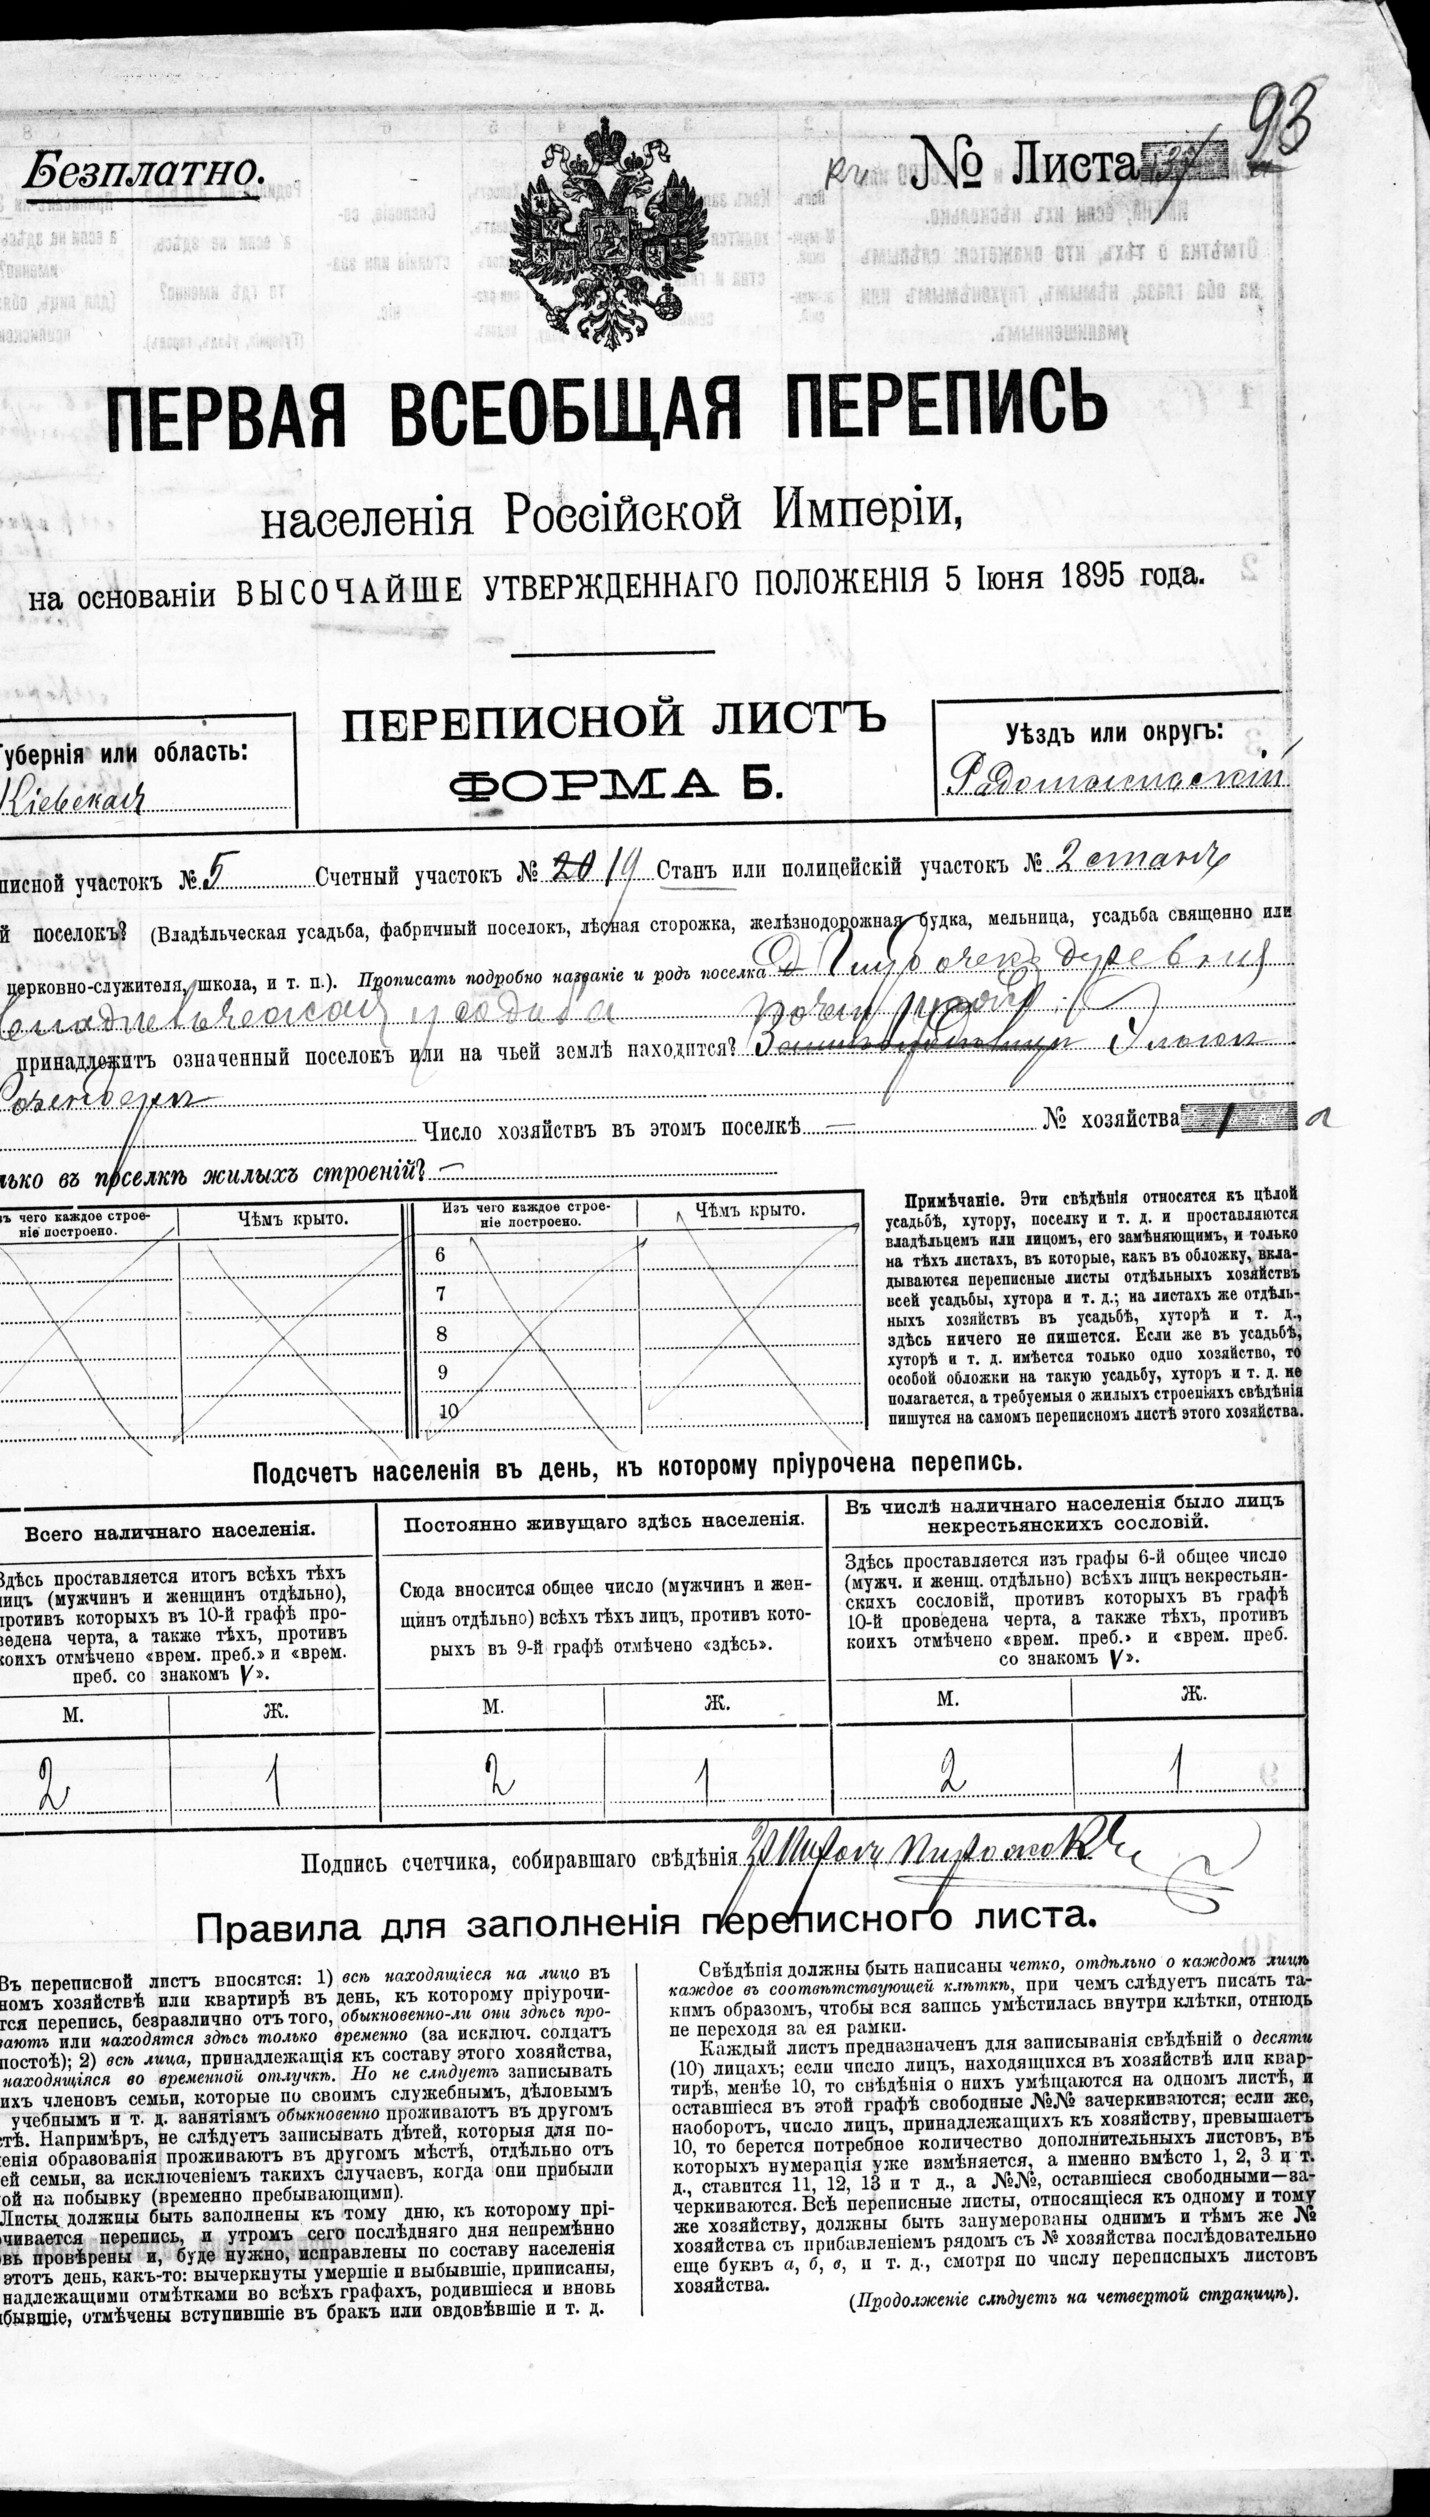 93
Безплатно.
№ Листа 37
ПЕРВАЯ ВСЕОБЩАЯ ПЕРЕПИСЬ
населенія Россійской Имперіи,
на основаніи ВЫСОЧАЙШЕ УТВЕРЖДЕННАГО ПОЛОЖЕНІЯ 5 Іюня 1895 года.
ПЕРЕПИСНОЙ ЛИСТЪ
ФОРМА Б.
Губернія или область:
Кіевская
Уѣздъ или округъ:
Радомысльскій
писной участокъ № 5 Счетный участокъ № 20 19 Станъ или полицейскій участокъ № 2 станъ
й поселокъ? (Владѣльческая усадьба, фабричный поселокъ, лѣсная сторожка, желѣзнодорожная будка, мельница, усадьба священно или
церковно-служителя, школа, и т. п.). Прописать подробно названіе и родъ поселка деревня
усадьба
принадлежитъ означенный поселокъ или на чьей землѣ находится?
Число хозяйствъ въ этомъ поселкѣ — № хозяйства 1 а
лько въ поселкѣ жилыхъ строеній? —
зъ чего каждое строе-
ніе построено.
Чѣмъ крыто.
Изъ чего каждое строе-
ніе построено.
Чѣмъ крыто.
6
7
8
9
10
Примѣчаніе. Эти свѣдѣнія относятся къ цѣлой
усадьбѣ, хутору, поселку и т. д. и проставляются
владѣльцемъ или лицомъ, его замѣняющимъ, и только
на тѣхъ листахъ, въ которые, какъ въ обложку, вкла-
дываются переписные листы отдѣльныхъ хозяйствъ
всей усадьбы, хутора и т. д.; на листахъ же отдѣль-
ныхъ хозяйствъ въ усадьбѣ, хуторѣ и т. д.,
здѣсь ничего не пишется. Если же въ усадьбѣ,
хуторѣ и т. д. имѣется только одно хозяйство, то
особой обложки на такую усадьбу, хуторъ и т. д. не
полагается, а требуемыя о жилыхъ строеніяхъ свѣдѣнія
пишутся на самомъ переписномъ листѣ этого хозяйства.
Подсчетъ населенія въ день, къ которому пріурочена перепись.
Всего наличнаго населенія.
Здѣсь проставляется итогъ всѣхъ тѣхъ
лицъ (мужчинъ и женщинъ отдѣльно),
противъ которыхъ въ 10-й графѣ про-
ведена черта, а также тѣхъ, противъ
коихъ отмѣчено «врем. преб.» и «врем.
преб. со знакомъ V».
М. Ж.
2 1
Постоянно живущаго здѣсь населенія.
Сюда вносится общее число (мужчинъ и жен-
щинъ отдѣльно) всѣхъ тѣхъ лицъ, противъ кото-
рыхъ въ 9-й графѣ отмѣчено «здѣсь».
М. Ж.
2 1
Въ числѣ наличнаго населенія было лицъ
некрестьянскихъ сословій.
Здѣсь проставляется изъ графы 6-й общее число
(мужч. и женщ. отдѣльно) всѣхъ лицъ некрестьян-
скихъ сословій, противъ которыхъ въ графѣ
10-й проведена черта, а также тѣхъ, противъ
коихъ отмѣчено «врем. преб.» и «врем. преб.
со знакомъ V».
М. Ж.
2 1
Подпись счетчика, собиравшаго свѣдѣнія
Правила для заполненія переписного листа.
Въ переписной листъ вносятся: 1) всѣ находящіеся на лицо въ
номъ хозяйствѣ или квартирѣ въ день, къ которому пріурочи-
тся перепись, безразлично отъ того, обыкновенно-ли они здѣсь про-
вають или находятся здѣсь только временно (за исключ. солдатъ
постоѣ); 2) всѣ лица, принадлежащія къ составу этого хозяйства,
находящіяся во временной отлучкѣ. Но не слѣдуетъ записывать
ихъ членовъ семьи, которые по своимъ служебнымъ, дѣловымъ
учебнымъ и т. д. занятіямъ обыкновенно проживаютъ въ другомъ
стѣ. Напримѣръ, не слѣдуетъ записывать дѣтей, которыя для по-
ченія образованія проживаютъ въ другомъ мѣстѣ, отдѣльно отъ
ей семьи, за исключеніемъ такихъ случаевъ, когда они прибыли
ой на побывку (временно пребывающими).
Листы должны быть заполнены къ тому дню, къ которому прі-
чивается перепись, и утромъ сего послѣдняго дня непремѣнно
овь провѣрены и, буде нужно, исправлены по составу населенія
этотъ день, какъ-то: вычеркнуты умершіе и выбывшіе, приписаны,
надлежащими отмѣтками во всѣхъ графахъ, родившіеся и вновь
ибывшіе, отмѣчены вступившіе въ бракъ или овдовѣвшіе и т. д.
Свѣдѣнія должны быть написаны четко, отдѣльно о каждомъ лицѣ
каждое въ соотвѣтствующей клѣткѣ, при чемъ слѣдуетъ писать та-
кимъ образомъ, чтобы вся запись умѣстилась внутри клѣтки, отнюдь
не переходя за ея рамки.
Каждый листъ предназначенъ для записыванія свѣдѣній о десяти
(10) лицахъ; если число лицъ, находящихся въ хозяйствѣ или квар-
тирѣ, менѣе 10, то свѣдѣнія о нихъ умѣщаются на одномъ листѣ, и
оставшіеся въ этой графѣ свободные №№ зачеркиваются; если же,
наоборотъ, число лицъ, принадлежащихъ къ хозяйству, превышаетъ
10, то берется потребное количество дополнительныхъ листовъ, въ
которыхъ нумерація уже измѣняется, а именно вмѣсто 1, 2, 3 и т.
д., ставится 11, 12, 13 и т д., а №№, оставшіеся свободными—за-
черкиваются. Всѣ переписные листы, относящіеся къ одному и тому
же хозяйству, должны быть занумерованы однимъ и тѣмъ же №
хозяйства съ прибавленіемъ рядомъ съ № хозяйства послѣдовательно
еще буквъ а, б, в, и т. д., смотря по числу переписныхъ листовъ
хозяйства.
(Продолженіе слѣдуетъ на четвертой страницѣ).